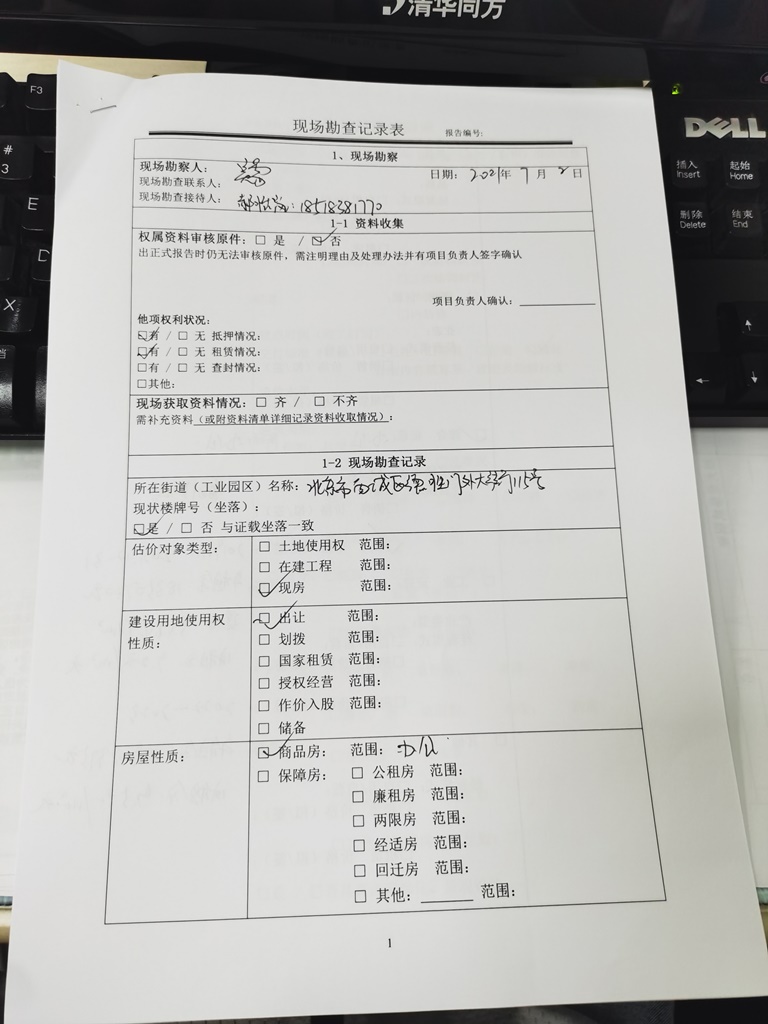 清华同方
DELL
F3
#
3
E
D
X
挡
插入
Insert
起始
Home
删除
Delete
结束
End
现场勘查记录表 报告编号:
1、现场勘察
现场勘察人: 日期: 2021年 7 月 2 日
现场勘查联系人:
现场勘查接待人: 18518381770
1-1 资料收集
权属资料审核原件: □ 是 / ☑ 否
出正式报告时仍无法审核原件，需注明理由及处理办法并有项目负责人签字确认
项目负责人确认:
他项权利状况:
☑有 / □ 无 抵押情况:
☑有 / □ 无 租赁情况:
□有 / □ 无 查封情况:
□其他:
现场获取资料情况: □ 齐 / □ 不齐
需补充资料（或附资料清单详细记录资料收取情况）:
1-2 现场勘查记录
所在街道（工业园区）名称: 北京市西城区德胜门外大街115号
现状楼牌号（坐落）:
☑是 / □ 否 与证载坐落一致
估价对象类型: □ 土地使用权 范围:
□ 在建工程 范围:
☑ 现房 范围:
建设用地使用权
性质:
☑ 出让 范围:
□ 划拨 范围:
□ 国家租赁 范围:
□ 授权经营 范围:
□ 作价入股 范围:
□ 储备
房屋性质: ☑ 商品房: 范围: 办公
□ 保障房: □ 公租房 范围:
□ 廉租房 范围:
□ 两限房 范围:
□ 经适房 范围:
□ 回迁房 范围:
□ 其他: ______ 范围:
1